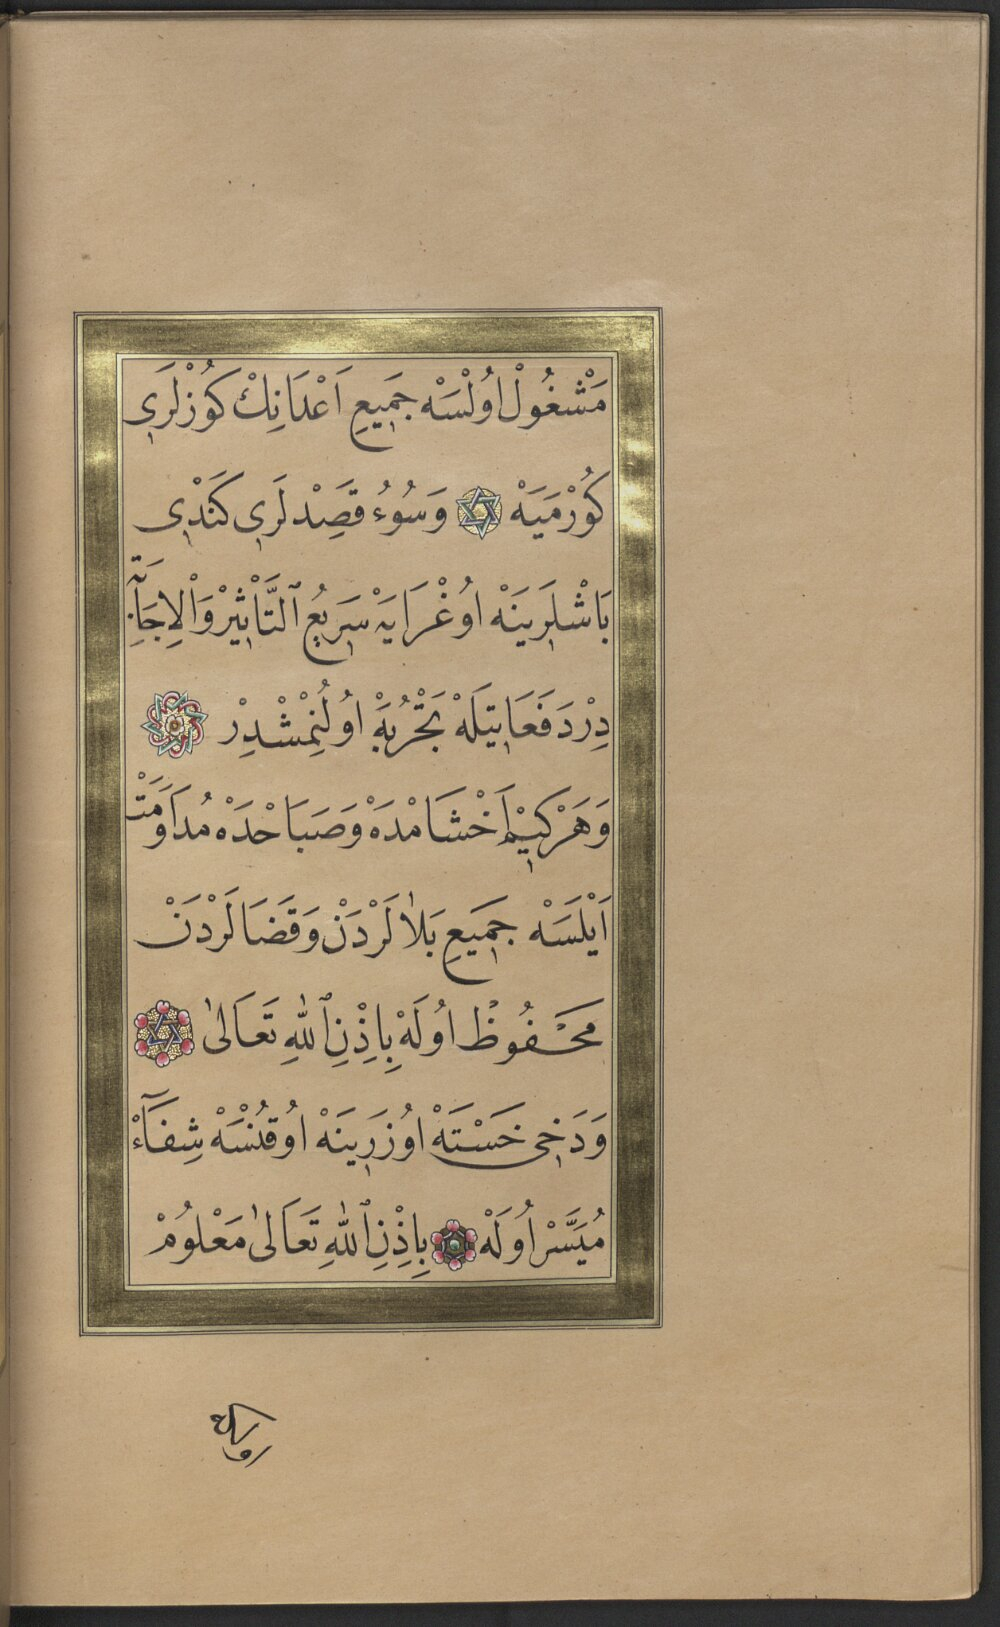 مَشْغُولْ اوُلْسَهْ جَمِيعِ اَعْدَانِكْ كُوزْلَرِى
كُورْمَيَهْ وَسُوءُ قَصِدْلَرِى كَنْدِى
بَاشْلَرِينَهْ اوُغْرَايَهْ سَرِيعُ ٱلتَّأْثِيرْ وَٱلْاِجَابَةْ
دِرْ دَفَعَاتِيلَهْ تَجْرُبَهْ اوُلُنْمِشْدِرْ
وَهَرْ كِيمْ اَخْشَامْدَهْ وَصَبَاحْدَهْ مُدَاوَمَتْ
اَيْلَسَهْ جَمِيعِ بَلَالَرْدَنْ وَقَضَالَرْدَنْ
مَحْفُوظْ اوُلَهْ بِاِذْنِ ٱللهِ تَعَالٰى
وَدَخِى خَسْتَهْ اوُزَرِينَهْ اوُقُنْسَهْ شِفَآءْ
مُيَسَّرْ اوُلَهْ بِاِذْنِ ٱللهِ تَعَالٰى مَعْلُومْ